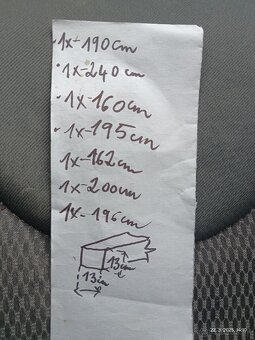 1x-190cm
1x-240cm
1x-160cm
1x-195cm
1x-162cm
1x-200cm
1x-196cm
13cm
13cm